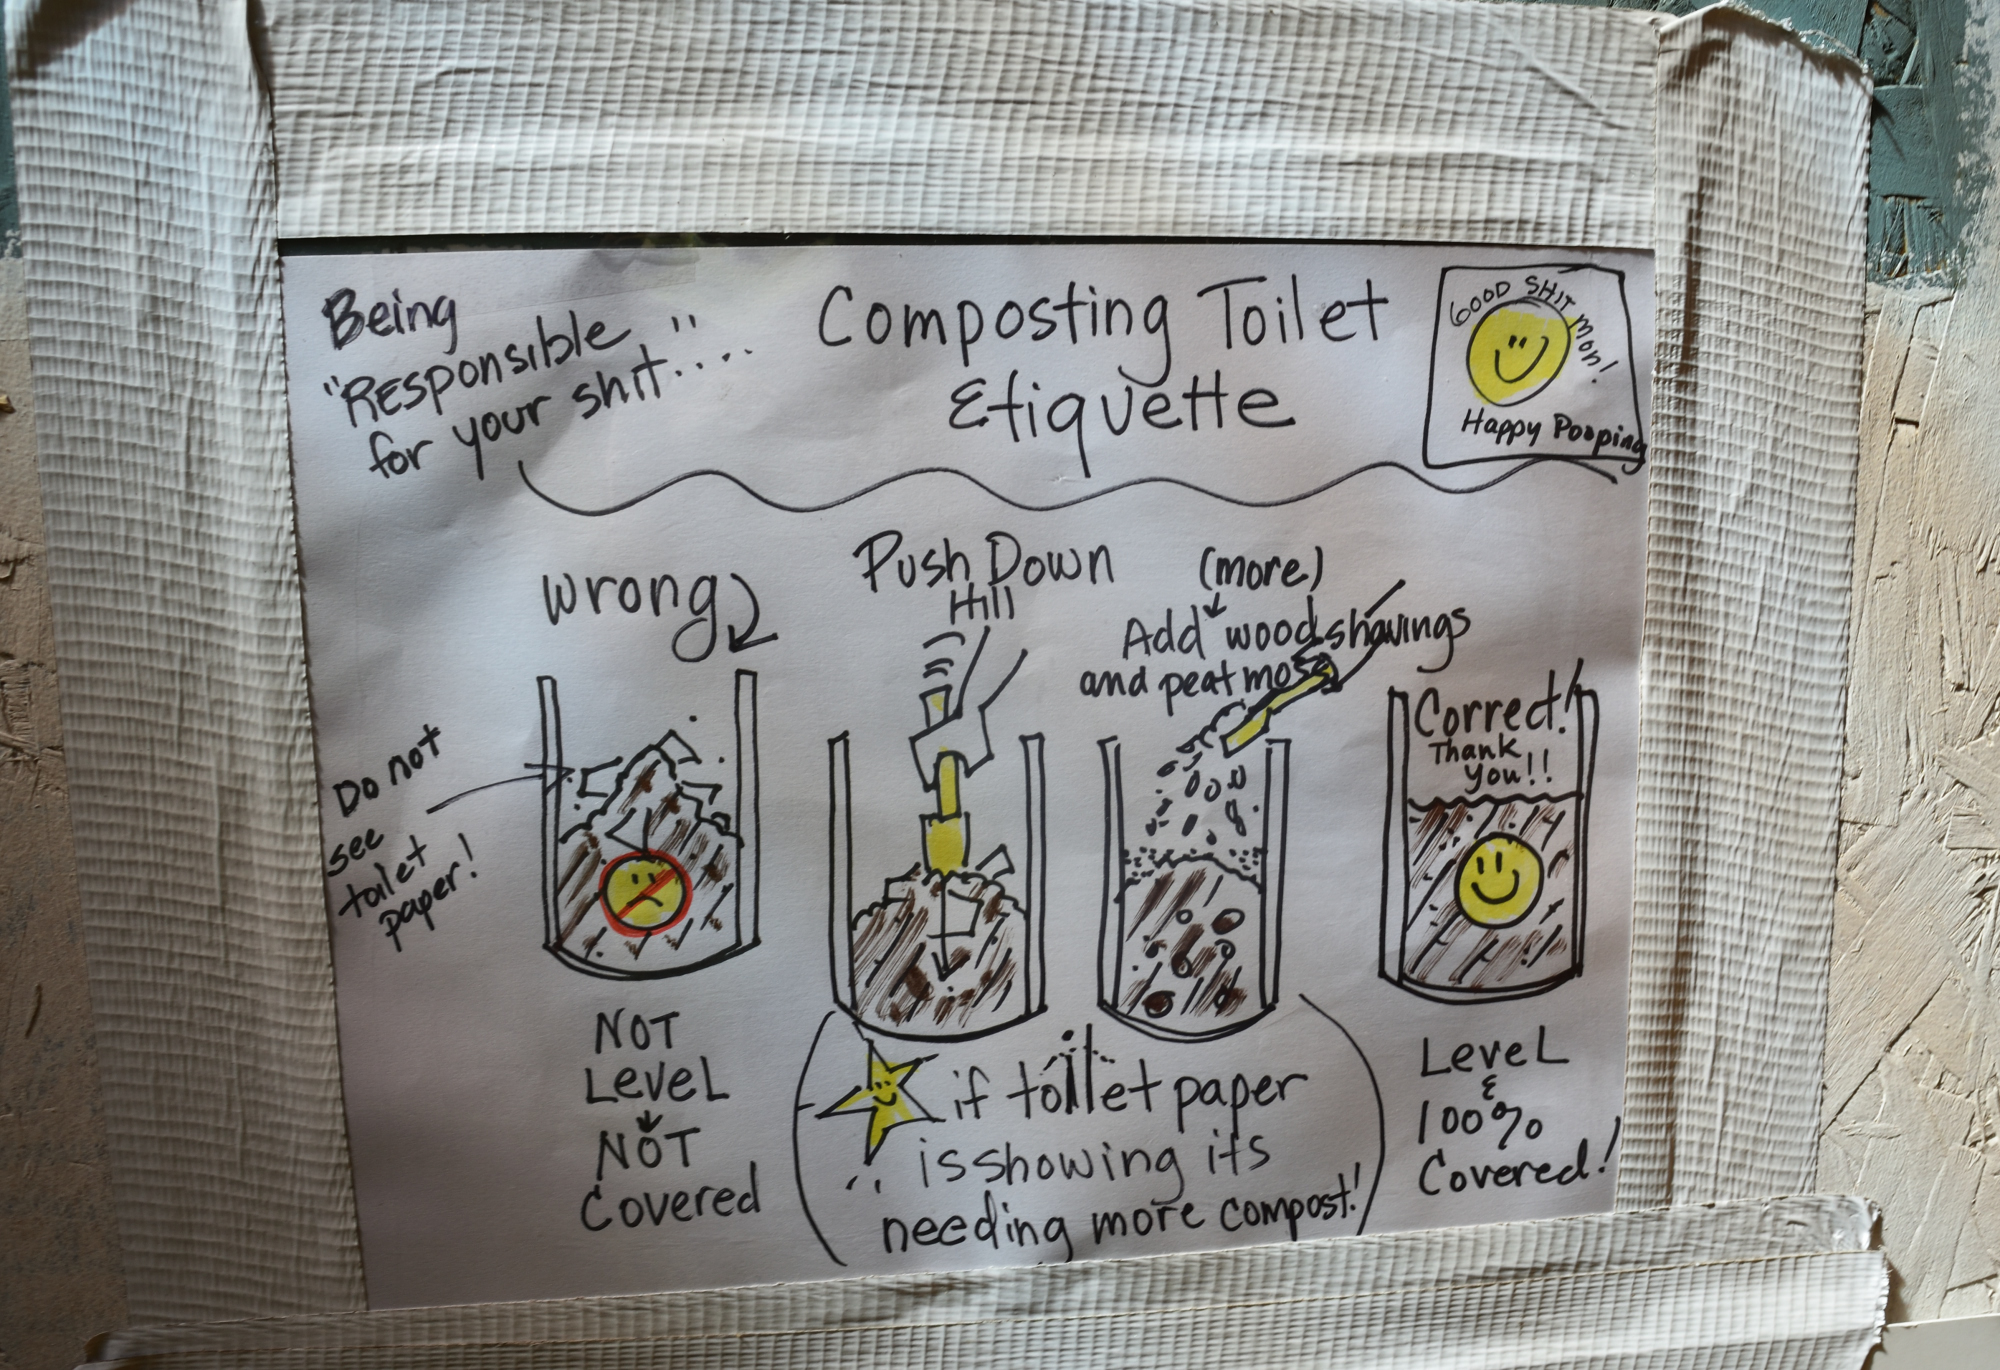 Being
"Responsible
for your shit"....
Composting Toilet
Etiquette
GOOD SHIT mon!
Happy Pooping
wrong
Do not
see
toilet
paper!
NOT
LeveL
NOT
Covered
Push Down
Hill
(more)
Add wood shavings
and peat moss
if toilet paper
is showing its
needing more compost!
Correct!
Thank
You!!
LeveL
&
100%
Covered!